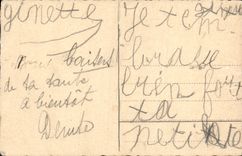 ginette
Baisers
de ta tante
a bientôt
Denise
Je tem
brase
bien for
ta
petite